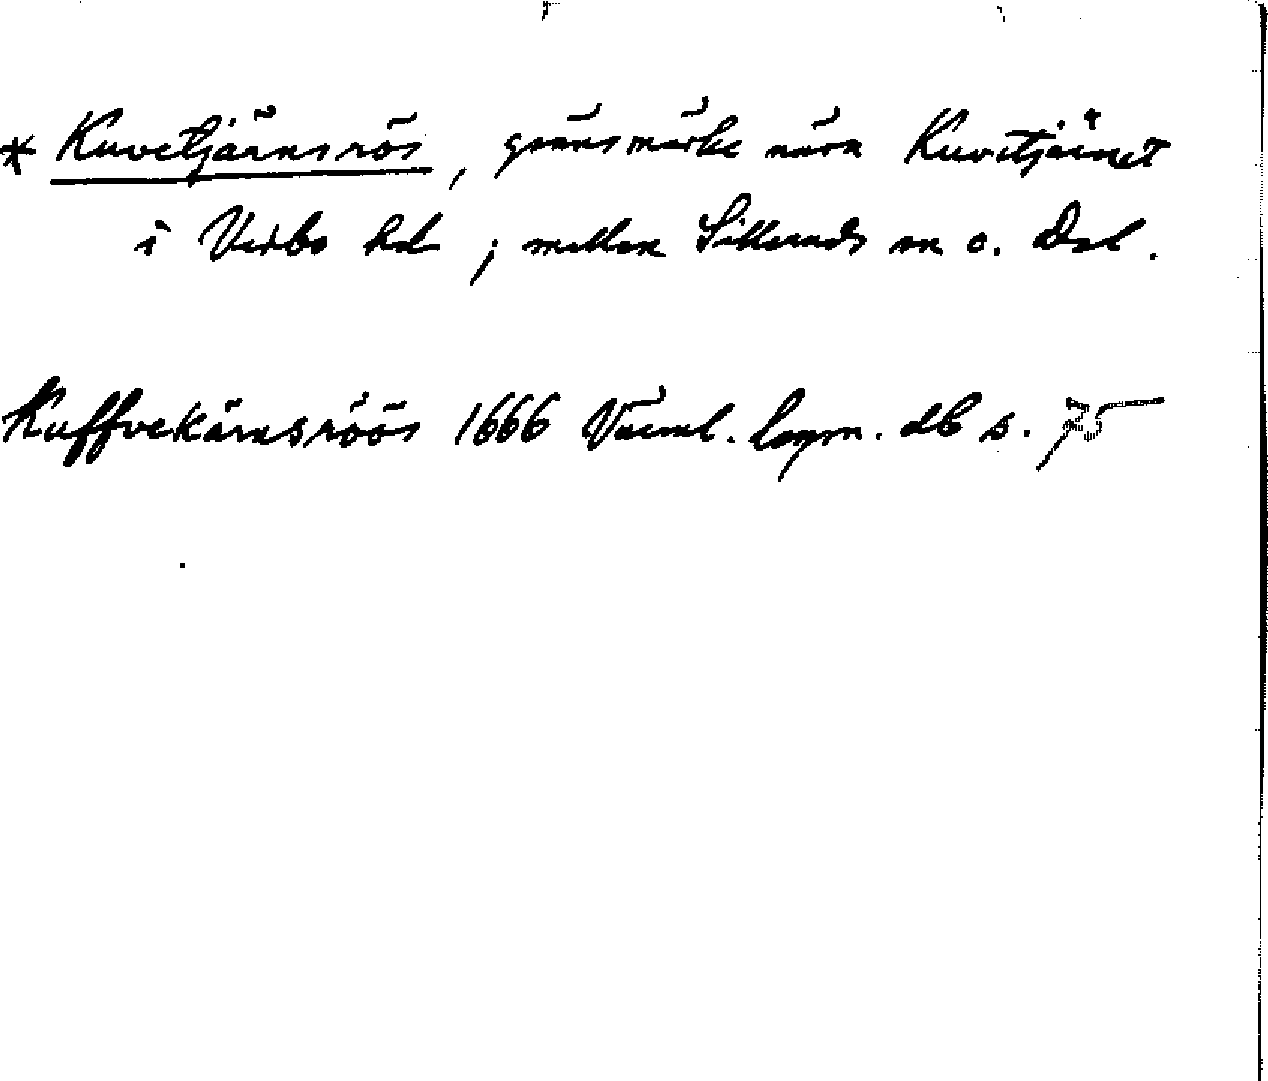 * Kuvetjärnsrös, gränsmärke nära Kuvetjärnet
i Vedbo hd; mellan Silleruds sn o. Dal.
Kuffvekärnsröös 1666 Värml. lagm. db s. 75